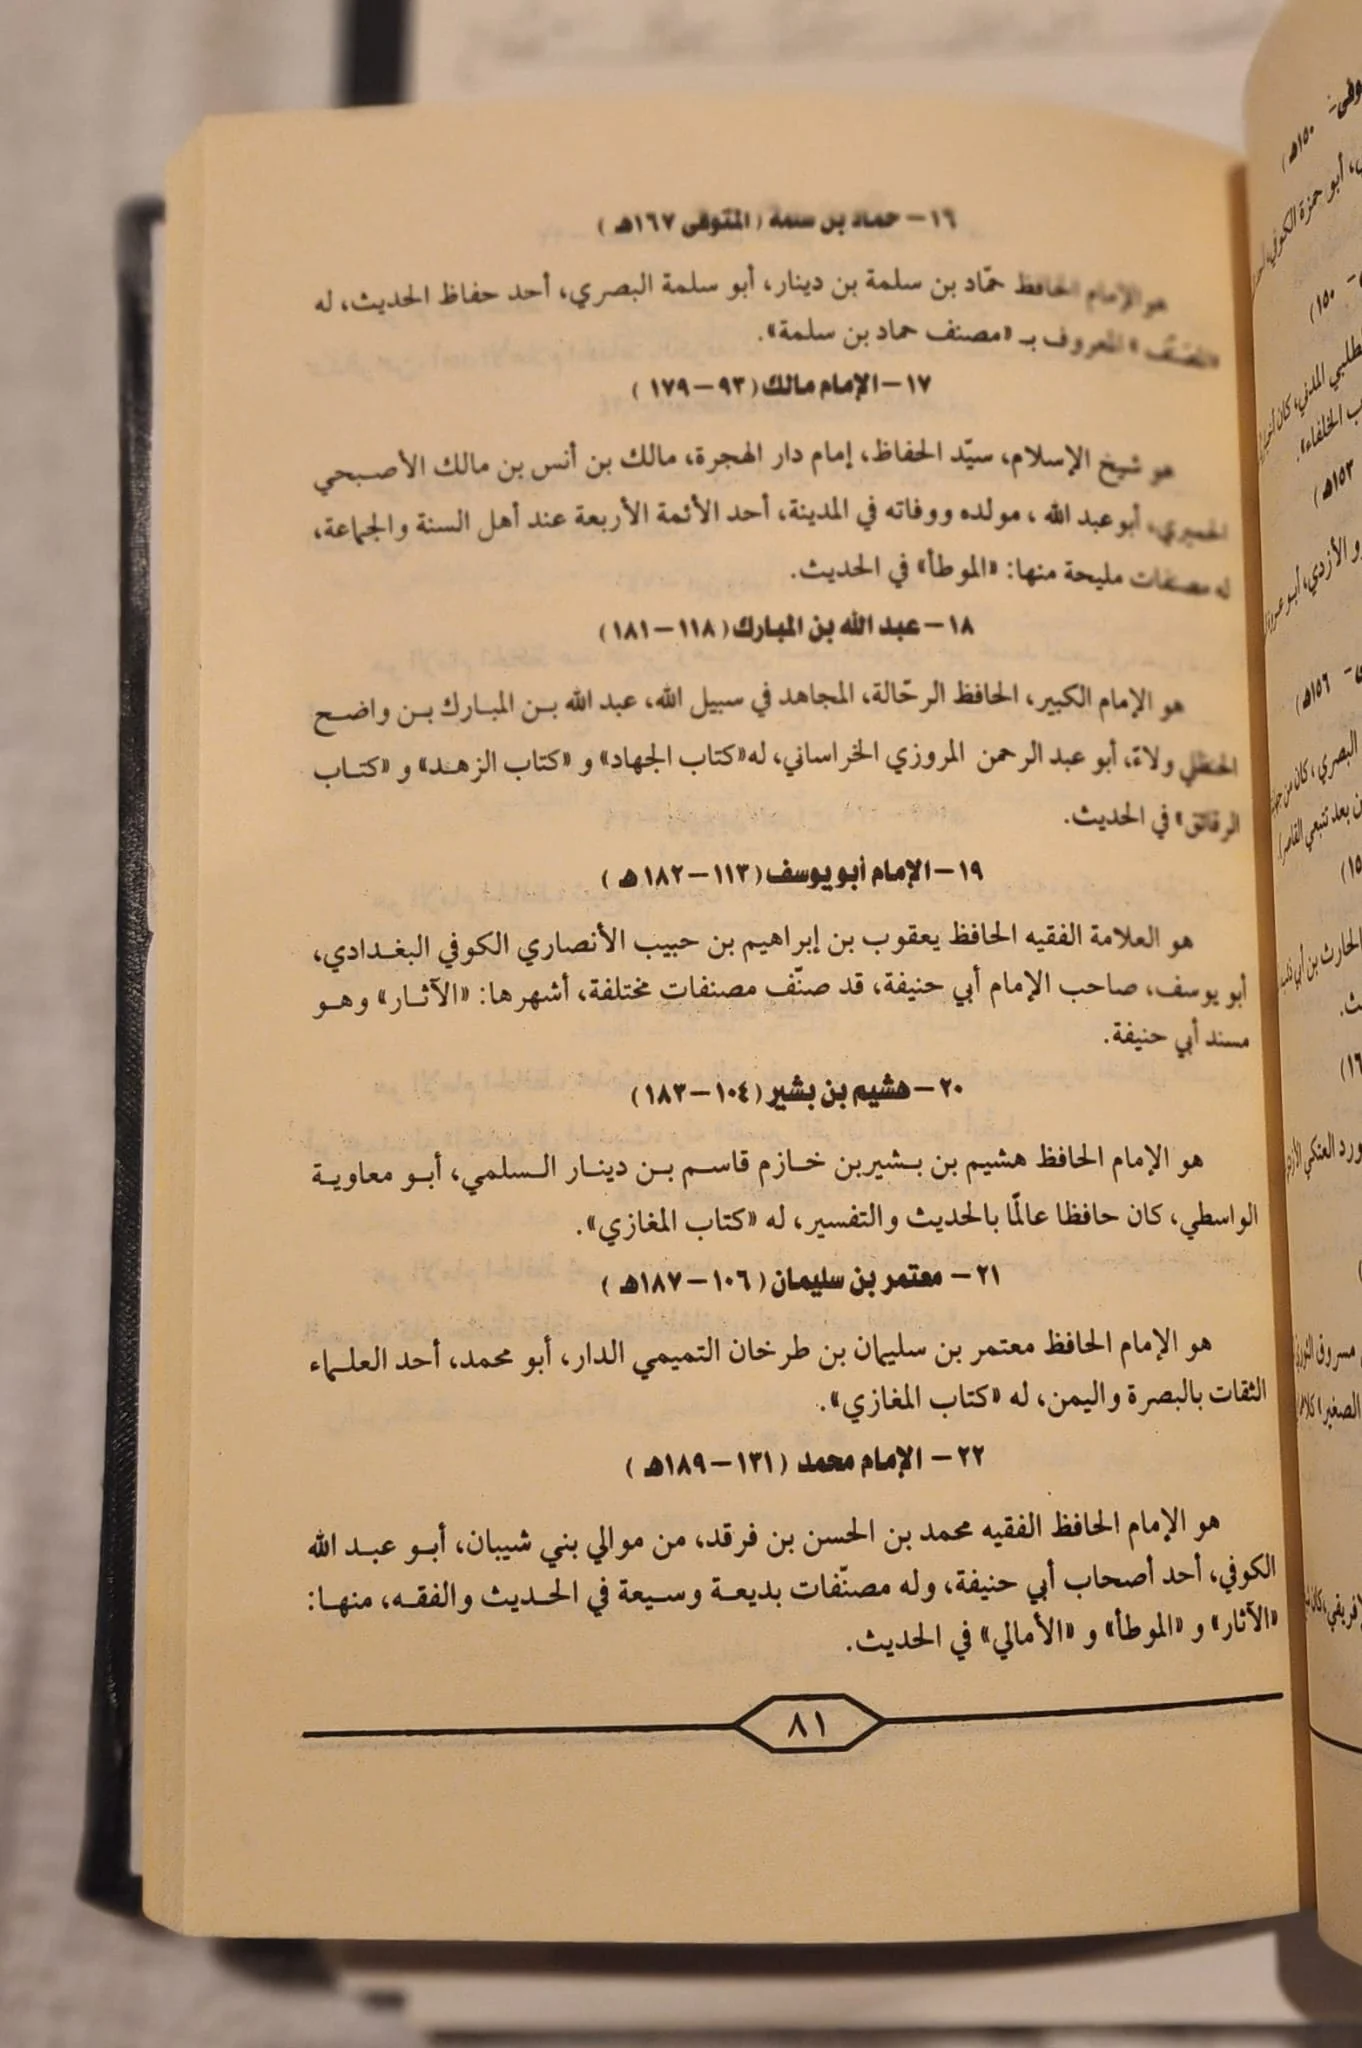 ١٦- حماد بن سلمة (المتوفى ١٦٧هـ)
هو الإمام الحافظ حمّاد بن سلمة بن دينار، أبو سلمة البصري، أحد حفاظ الحديث، له
«المصنّف» المعروف بـ «مصنف حماد بن سلمة».
١٧- الإمام مالك (٩٣-١٧٩)
هو شيخ الإسلام، سيّد الحفاظ، إمام دار الهجرة، مالك بن أنس بن مالك الأصبحي
الحميري، أبو عبد الله، مولده ووفاته في المدينة، أحد الأئمة الأربعة عند أهل السنة والجماعة،
له مصنفات مليحة منها: «الموطأ» في الحديث.
١٨- عبد الله بن المبارك (١١٨-١٨١)
هو الإمام الكبير، الحافظ الرحّالة، المجاهد في سبيل الله، عبد الله بن المبارك بن واضح
الحنظلي ولاءً، أبو عبد الرحمن المروزي الخراساني، له «كتاب الجهاد» و «كتاب الزهد» و «كتاب
الرقائق» في الحديث.
١٩- الإمام أبو يوسف (١١٣-١٨٢هـ)
هو العلامة الفقيه الحافظ يعقوب بن إبراهيم بن حبيب الأنصاري الكوفي البغدادي،
أبو يوسف، صاحب الإمام أبي حنيفة، قد صنّف مصنفات مختلفة، أشهرها: «الآثار» وهو
مسند أبي حنيفة.
٢٠- هشيم بن بشير (١٠٤-١٨٣)
هو الإمام الحافظ هشيم بن بشيربن خازم قاسم بن دينار السلمي، أبو معاوية
الواسطي، كان حافظا عالمًا بالحديث والتفسير، له «كتاب المغازي».
٢١- معتمر بن سليمان (١٠٦-١٨٧هـ)
هو الإمام الحافظ معتمر بن سليمان بن طرخان التميمي الدار، أبو محمد، أحد العلماء
الثقات بالبصرة واليمن، له «كتاب المغازي».
٢٢- الإمام محمد (١٣١-١٨٩هـ)
هو الإمام الحافظ الفقيه محمد بن الحسن بن فرقد، من موالي بني شيبان، أبو عبد الله
الكوفي، أحد أصحاب أبي حنيفة، وله مصنّفات بديعة وسيعة في الحديث والفقه، منها:
«الآثار» و «الموطأ» و «الأمالي» في الحديث.
٨١